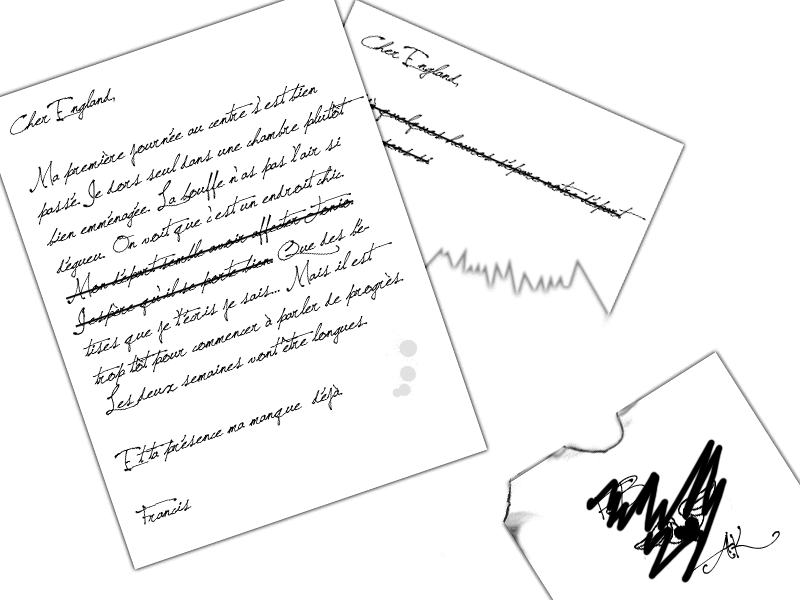 Cher England,
Ma première journée au centre s'est bien
passé. Je dors seul dans une chambre plutôt
bien emménagée. La bouffe n'as pas l'air si
dégueu. On voit que c'est un endroit chic.
Mon départ semble avoir affecter Tonio.
J'espère qu'il se porte bien. Que des bê-
tises que je t'écris je sais... Mais il est
trop tôt pour commencer à parler de progrès.
Les deux semaines vont être longues.
Et ta présence ma manque déjà.
Francis
Cher England,
quelques heures d'épure notre départ
AK